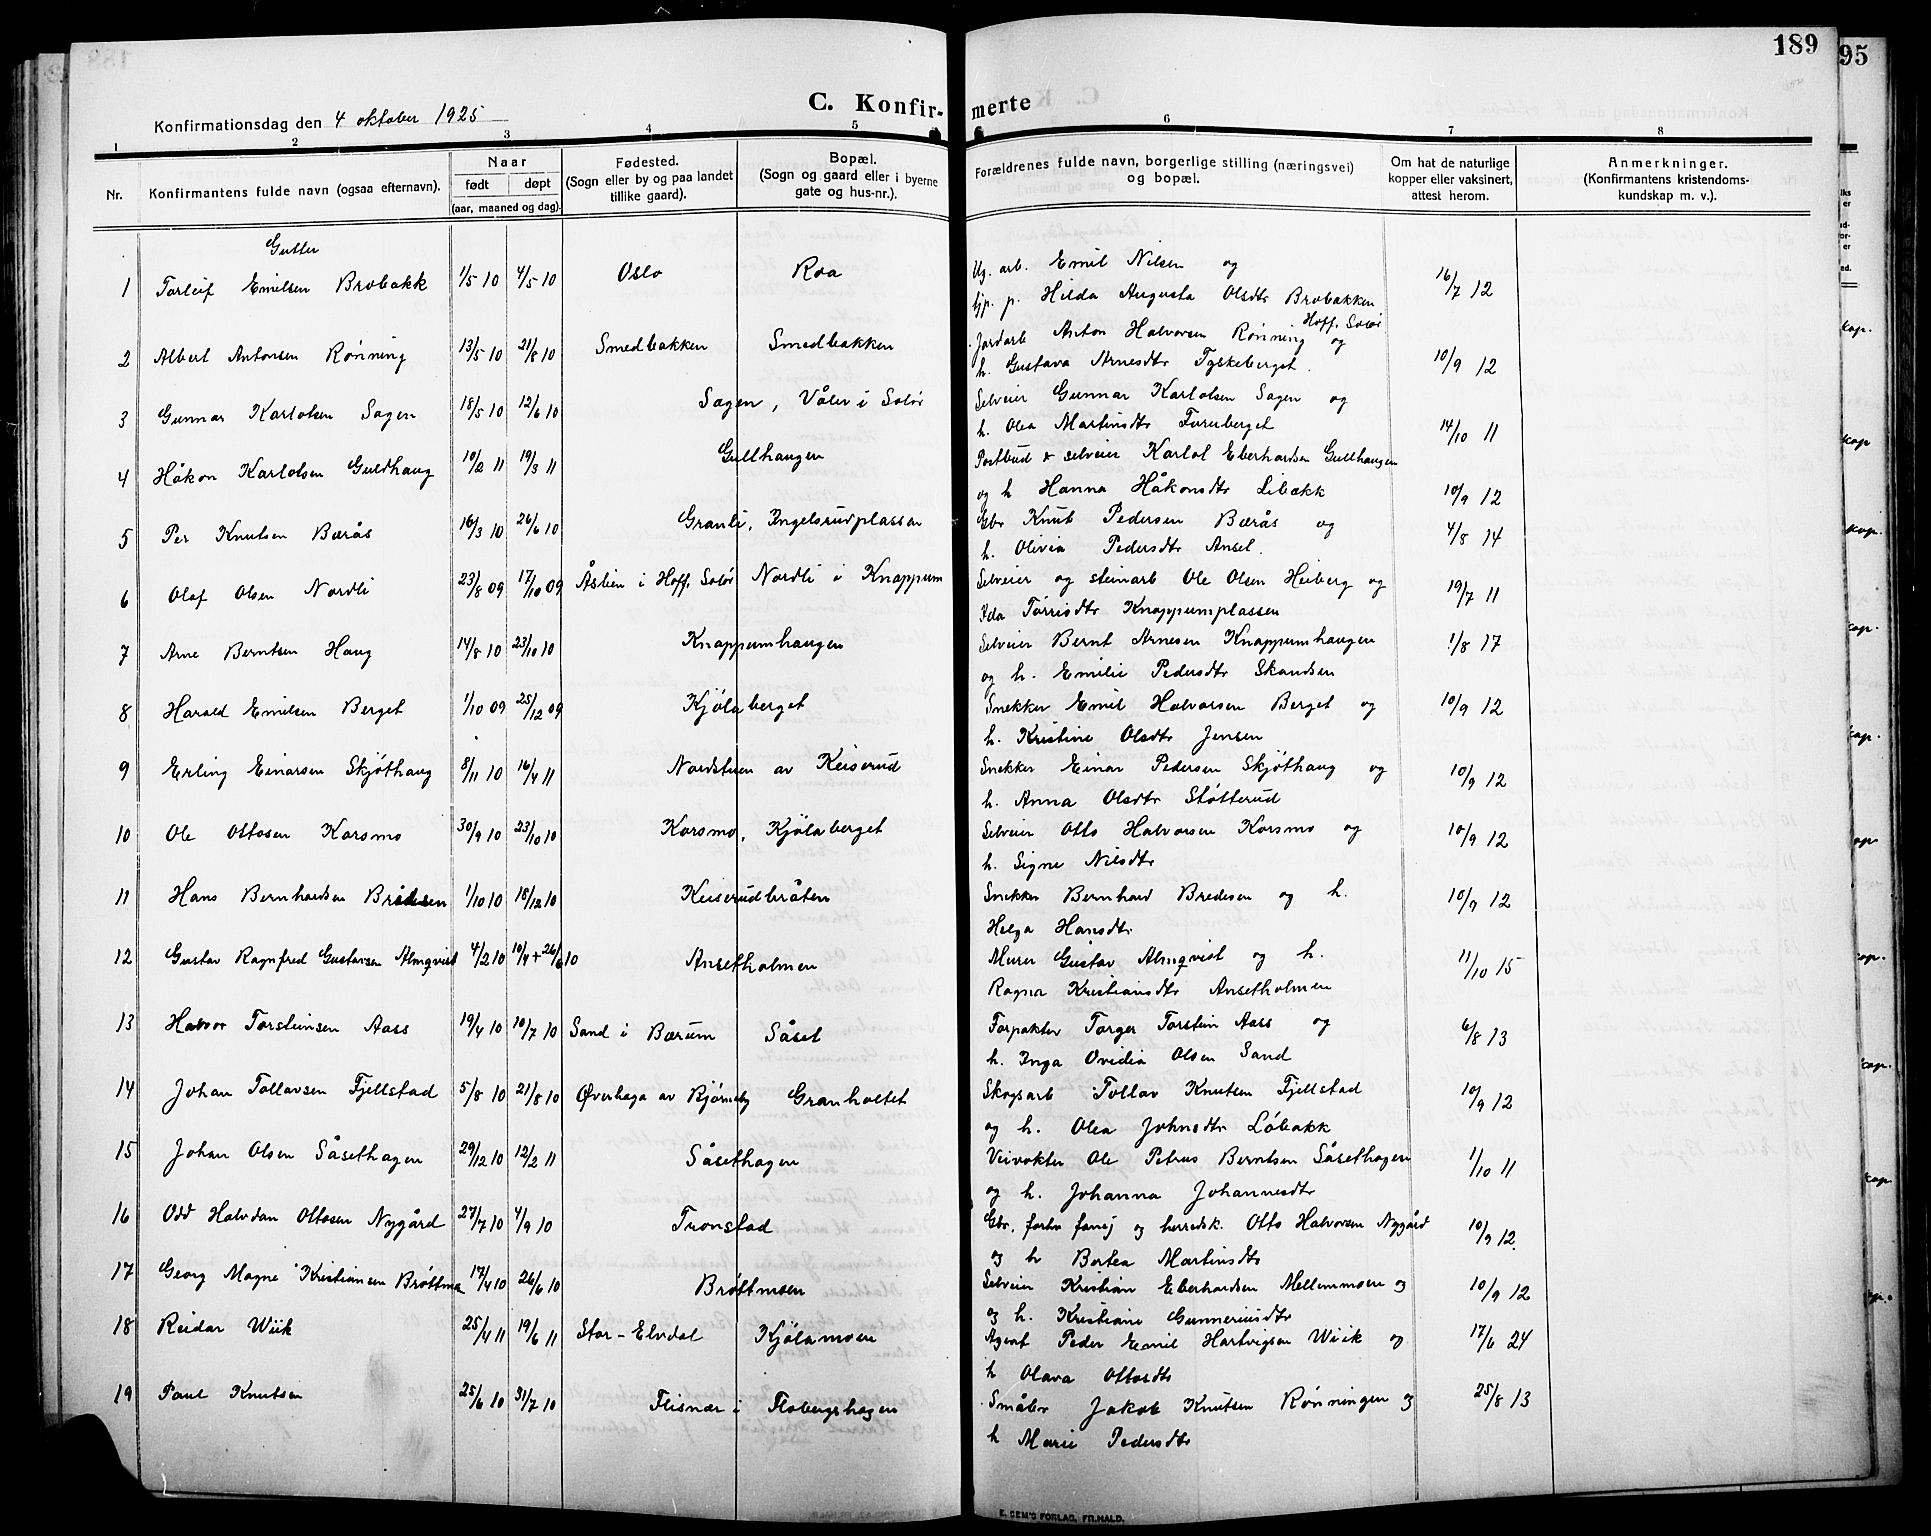 189
95
C. Konfir-
merte
Konfirmationsdag den 4 oktober 1925
1 2 3 4 5 6 7 8
Nr.
Konfirmantens fulde navn (ogsaa efternavn).
Naar
født døpt
(aar, maaned og dag).
Fødested.
(Sogn eller by og paa landet
tillike gaard).
Bopæl.
(Sogn og gaard eller i byerne
gate og hus-nr.).
Forældrenes fulde navn, borgerlige stilling (næringsvei)
og bopæl.
Om hat de naturlige
kopper eller vaksinert,
attest herom.
Anmerkninger.
(Konfirmantens kristendoms-
kundskap m. v.).
Gutter
1 Torleif Emilsen Brobakk 1/5 10 4/5 10 Oslo Roa Ug. arb. Emil Nilsen og 16/7 12
tjp. p. Hilda Augusta Olsdtr Brobakken
Hoff, Solør
2 Albert Antonsen Rønning 13/5 10 21/8 10 Smedbakken Smedbakken Jordarb Anton Halvorsen Rønning og 10/9 12
h. Gustava Arnesdtr Tyskeberget.
3 Gunnar Karlolsen Sagen 18/5 10 12/6 10 Sagen, Våler i Solør Selveier Gunnar Karlolsen Sagen og 14/10 11
h. Olea Martinsdtr Fureberget
4 Håkon Karlolsen Guldhaug 10/2 11 19/3 11 Gullhaugen Postbud & selveier Karlol Eberhardsen Gullhaugen
og h Hanna Håkonsdtr Libækk 10/9 12
5 Per Knutsen Bærås 16/3 10 26/6 10 Granli, Ingelsrudplassen Gbr Knut Pedersen Bærås og 4/8 14
h. Olivia Pedersdtr Anset.
6 Olaf Olsen Nordli 23/8 09 17/10 09 Åslien i Hoff, Solør Nordli i Knappum Selveier og steinarb Ole Olsen Heiberg og 19/7 11
Ida Torrisdtr Knappumplassen
7 Arne Berntsen Haug 14/8 10 23/10 10 Knappumhaugen Selveier Bernt Arnesen Knappumhaugen 1/8 17
og h. Emilie Pedersdtr Skandsen
8 Harald Emilsen Berget 1/10 09 25/12 09 Kjølaberget Snekker Emil Halvorsen Berget og 10/9 12
h. Kristine Olsdtr Jensen
9 Erling Einarsen Skjøthaug 8/11 10 16/4 11 Nordstuen av Keiserud Snekker Einar Pedersen Skjøthaug og 10/9 12
h. Anna Olsdtr Støtterud
10 Ole Ottosen Korsmo 30/9 10 23/10 10 Korsmo, Kjølaberget Selveier Otto Halvorsen Korsmo og 10/9 12
h. Signe Nilsdtr
11 Hans Bernhardsen Bredesen 1/10 10 18/12 10 Keiserudbråten Snekker Bernhard Bredesen og h. 10/9 12
Helga Hansdtr
12 Gustav Ragnfred Gustavsen Almqvist 4/2 10 10/4+26/6 10 Ansetholmen Murer Gustav Almqvist og h. 11/10 15
Ragna Kristiansdtr Ansetholmen
13 Halvor Torsteinsen Aass 19/4 10 10/7 10 Sand i Bærum Såset Forpakter Torger Torstein Aass og 6/8 13
h. Inga Ovidia Olsen Sand
14 Johan Tollavsen Fjellstad 5/8 10 21/8 10 Øverhaga av Bjørneby Granholtet Skogsarb Tollav Knutsen Fjellstad 10/9 12
og h. Olea Johnsdtr Løbakk
15 Johan Olsen Såsethagen 29/12 10 12/2 11 Såsethagen Veivokter Ole Petrus Berntsen Såsethagen 1/10 11
og h. Johanna Johannesdtr
16 Odd Halvdan Ottosen Nygård 27/7 10 4/9 10 Tronstad Gbr, forhv fanej og herredsk. Otto Halvorsen Nygård 10/9 12.
og h Bertea Martinsdtr
17 Georg Magne Kristiansen Brøttmo 17/4 10 26/6 10 Brøttmoen Selveier Kristian Eberhardsen Mellemmoen og 10/9 12
og h. Kristiane Gunneriusdtr
18 Reidar Wiik 25/4 11 19/6 11 Stor-Elvdal Kjølamoen Agent Peder Emil Hartvigsen Wiik og 17/6 24
h Olava Ottosdtr
19 Paul Knutsen 25/6 10 31/7 10 Flisnær i Flobergshagen Småbr Jakob Knutsen Rønningen og 25/8 13
h Marie Pedersdtr
E. SEM'S FORLAG, FR.HALD.